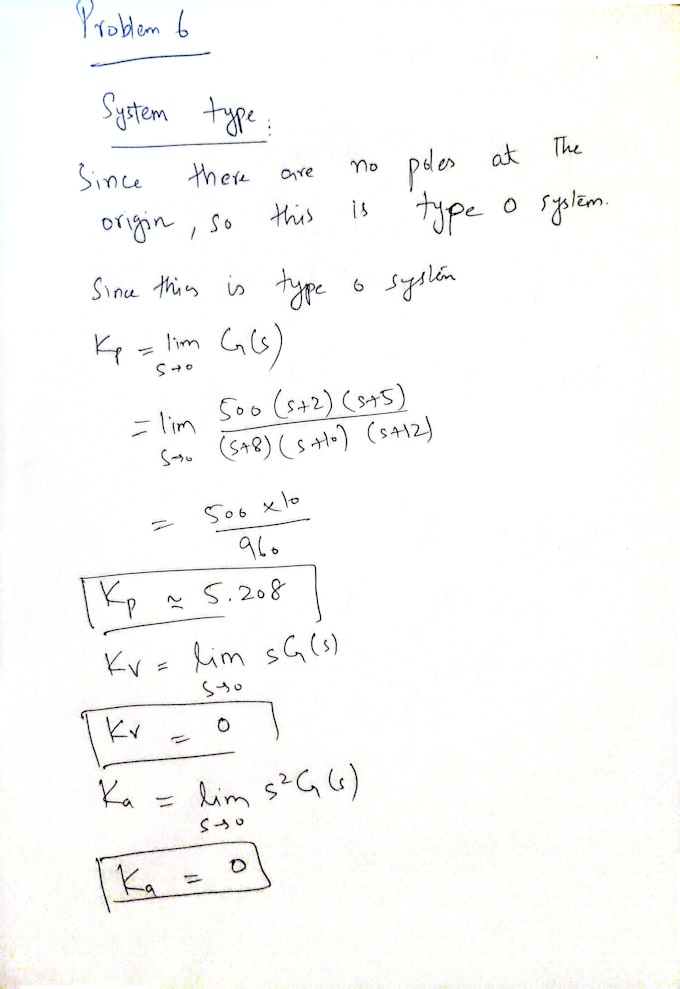 Problem 6
System type:
Since there are no poles at The
origin, so this is type 0 system.
Since this is type 0 system
Kp = lim G(s)
s→0
= lim 500 (s+2) (s+5)
s→0 (s+8) (s+10) (s+12)
= 500 x 10
960
Kp ≈ 5.208
Kv = lim sG(s)
s→0
Kv = 0
Ka = lim s²G(s)
s→0
Ka = 0